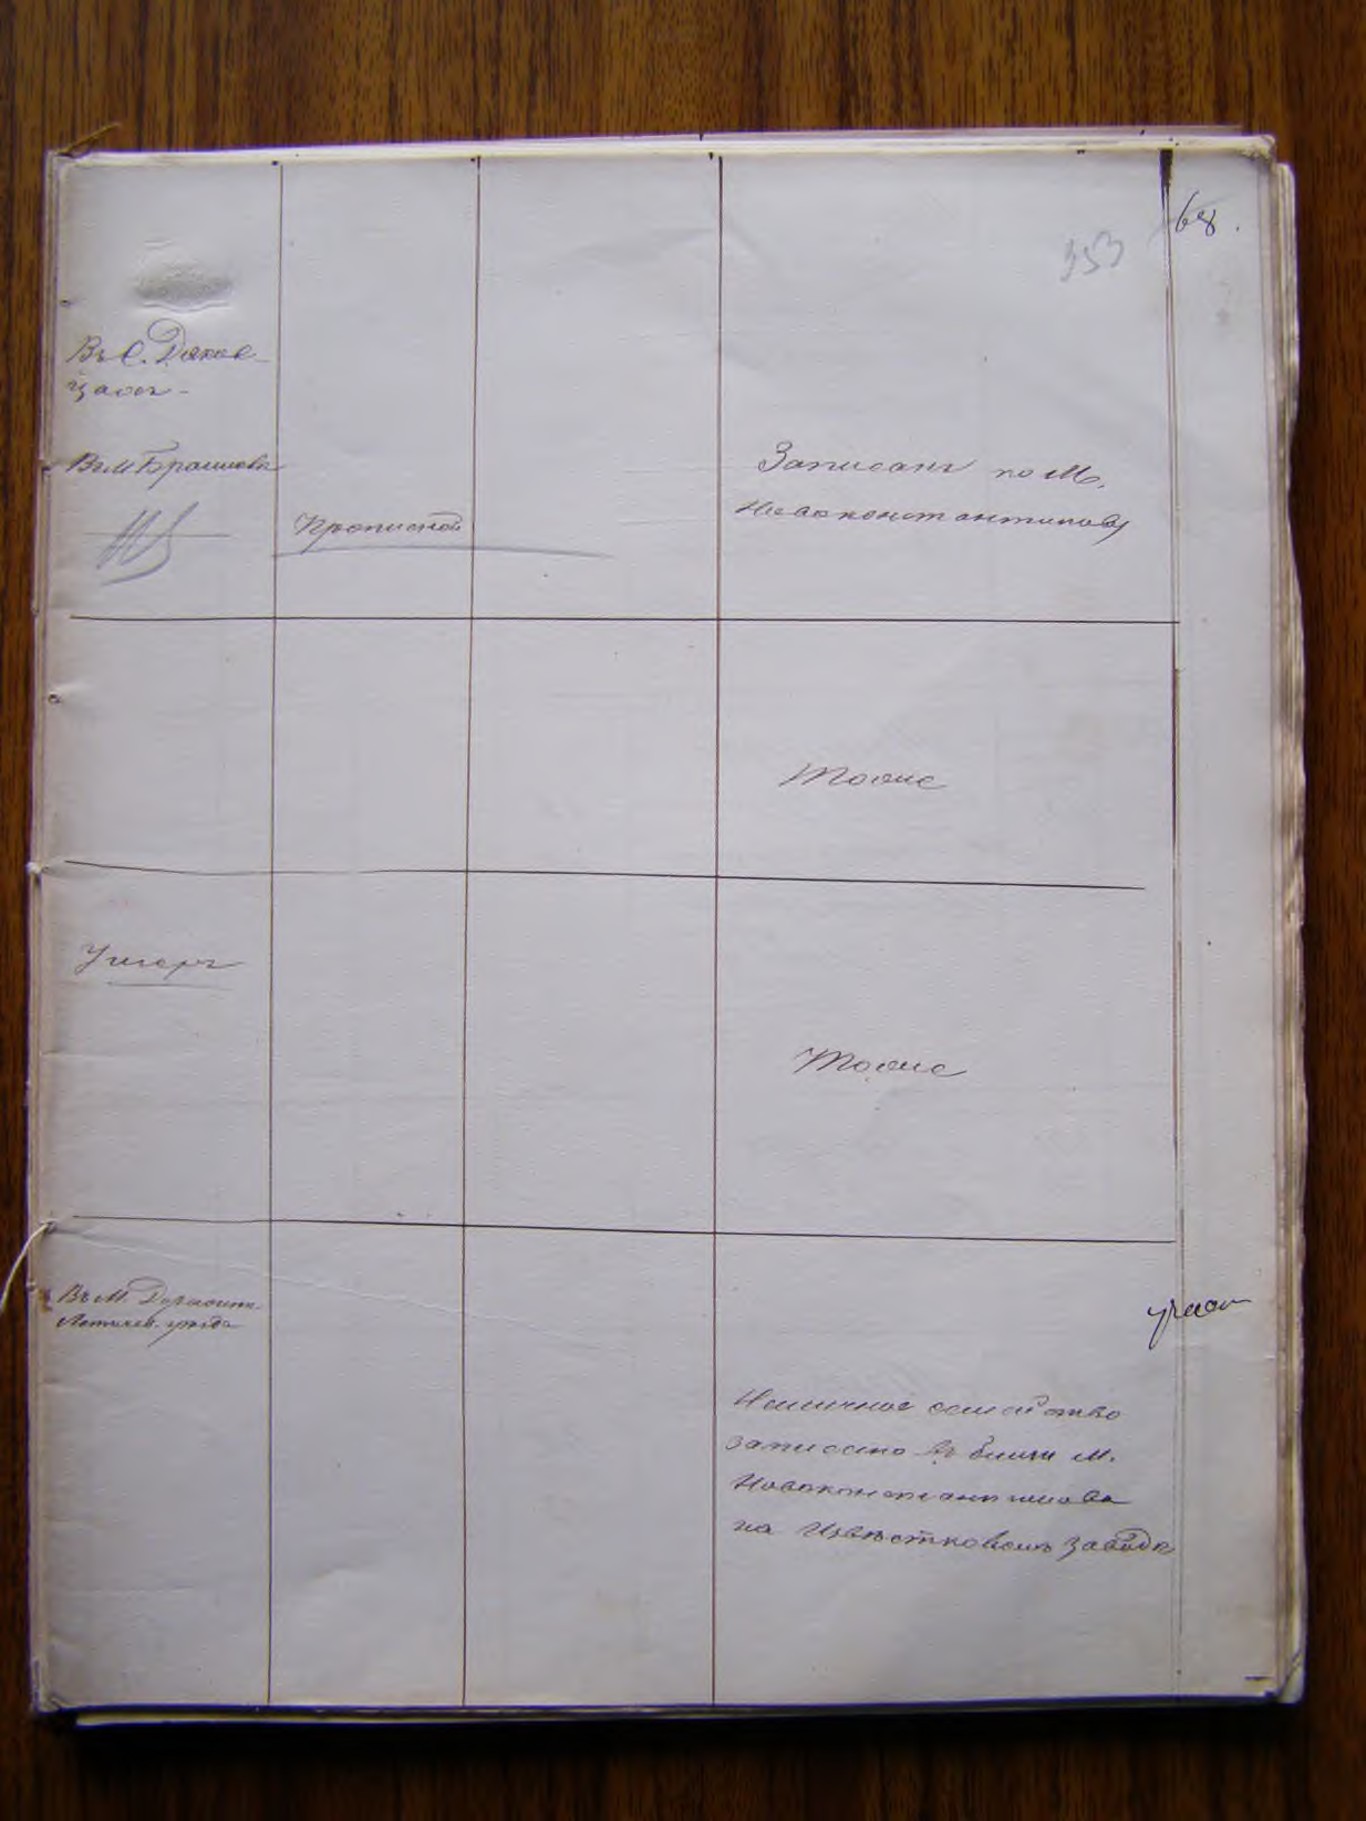 68.
353
Въ С. Дяков-
цахъ -
Въ М Браиловѣ
Прописной
Записанъ по М.
Новоконстантинову
Тоже
Умеръ
Тоже
Въ М. Деражни
Летичев. уѣзда
Наличное семейство
записано въ близи М.
Новоконстантинова
на Известковомъ заводѣ